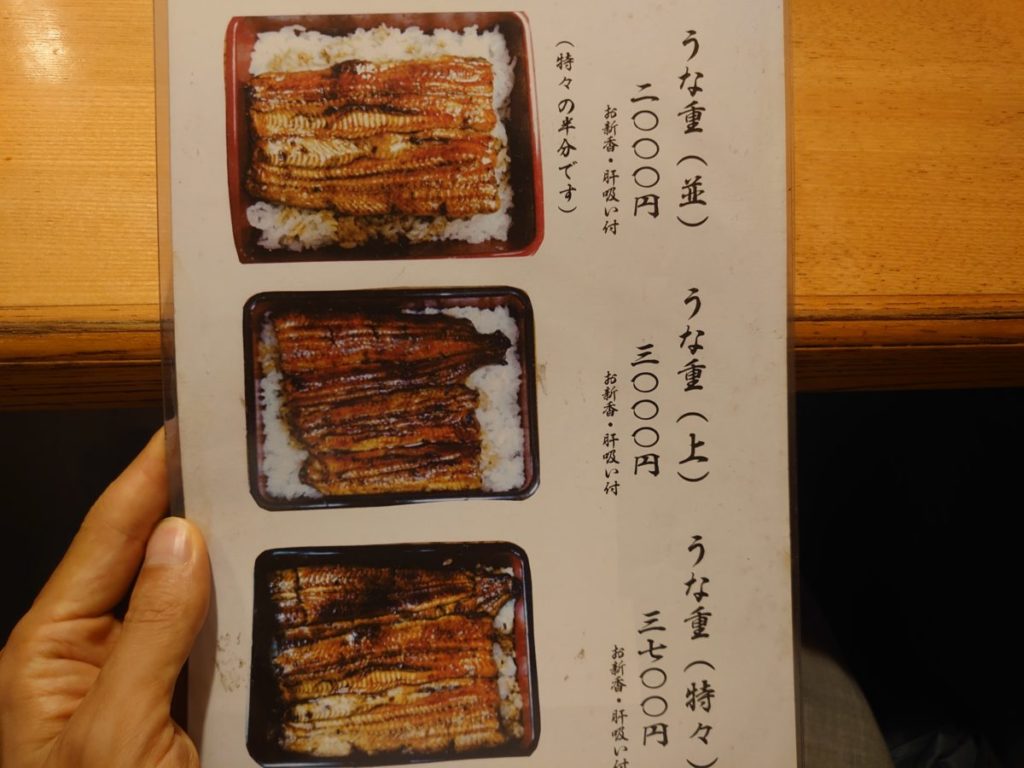 うな重（並）
二〇〇〇円
お新香・肝吸い付
（特々の半分です）
うな重（上）
三〇〇〇円
お新香・肝吸い付
うな重（特々）
三七〇〇円
お新香・肝吸い付